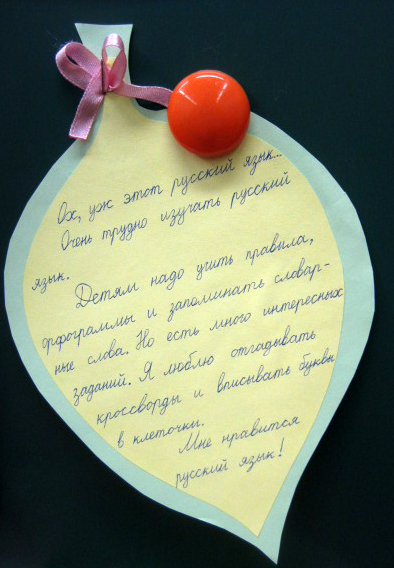 Ох, уж этот русский язык...
Очень трудно изучать русский
язык.
Детям надо учить правила,
орфограммы и запоминать словар-
ные слова. Но есть много интересных
заданий. Я люблю отгадывать
кроссворды и вписывать буквы
в клеточки.
Мне нравится
русский язык!